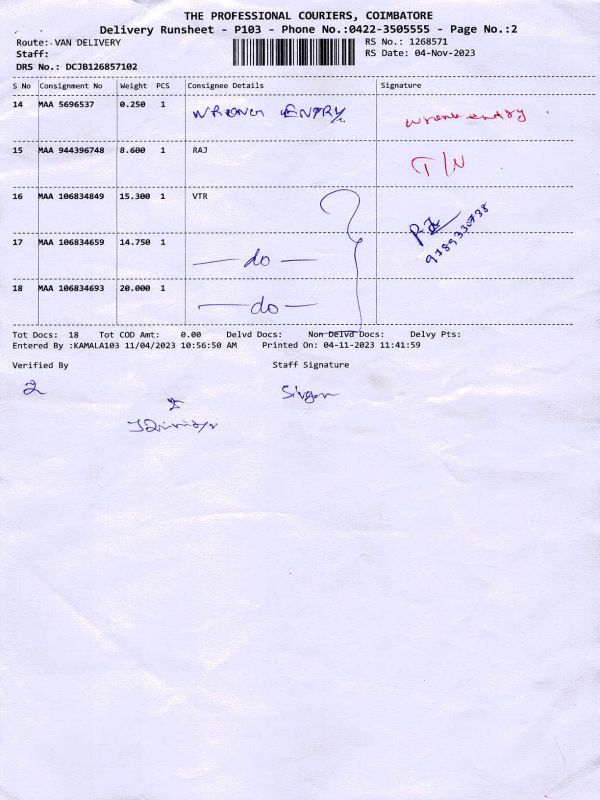 THE PROFESSIONAL COURIERS, COIMBATORE
Delivery Runsheet - P103 - Phone No.:0422-3505555 - Page No.:2
Route: VAN DELIVERY RS No.: 1268571
Staff: RS Date: 04-Nov-2023
DRS No.: DCJB126857102
S No Consignment No Weight PCS Consignee Details Signature
14 MAA 5696537 0.250 1 WRONG ENTRY wrong entry
15 MAA 944396748 8.600 1 RAJ T/N
16 MAA 106834849 15.300 1 VTR
9789330738
17 MAA 106834659 14.750 1 — do —
18 MAA 106834693 20.000 1 — do —
Tot Docs: 18 Tot COD Amt: 0.00 Delvd Docs: Non Delvd Docs: Delvy Pts:
Entered By :KAMALA103 11/04/2023 10:56:50 AM Printed On: 04-11-2023 11:41:59
Verified By Staff Signature
2